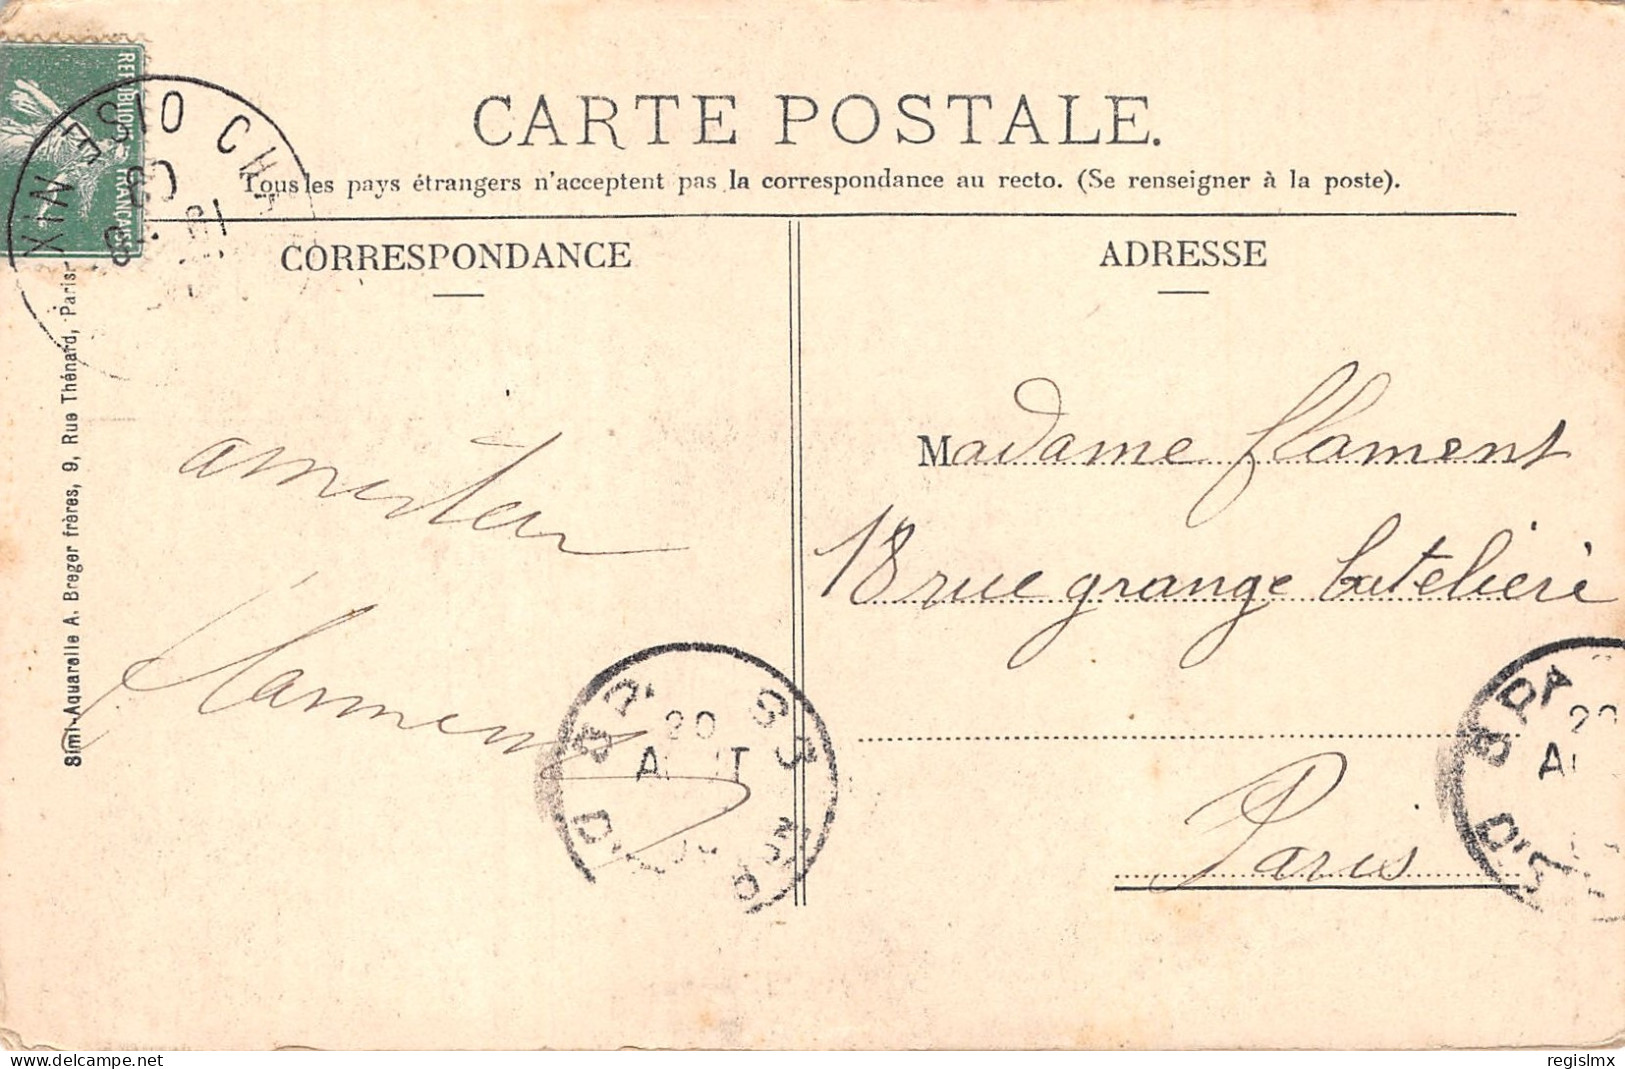 CARTE POSTALE.
Tous les pays étrangers n'acceptent pas la correspondance au recto. (Se renseigner à la poste).
CORRESPONDANCE
ADRESSE
REPUBLIQUE FRANÇAISE
Simi-Aquarelle A. Breger frères, 9, Rue Thénard, Paris.
Madame flament
18 rue grange batelière
Paris
20
AOUT
20
www.delcampe.net
regislmx